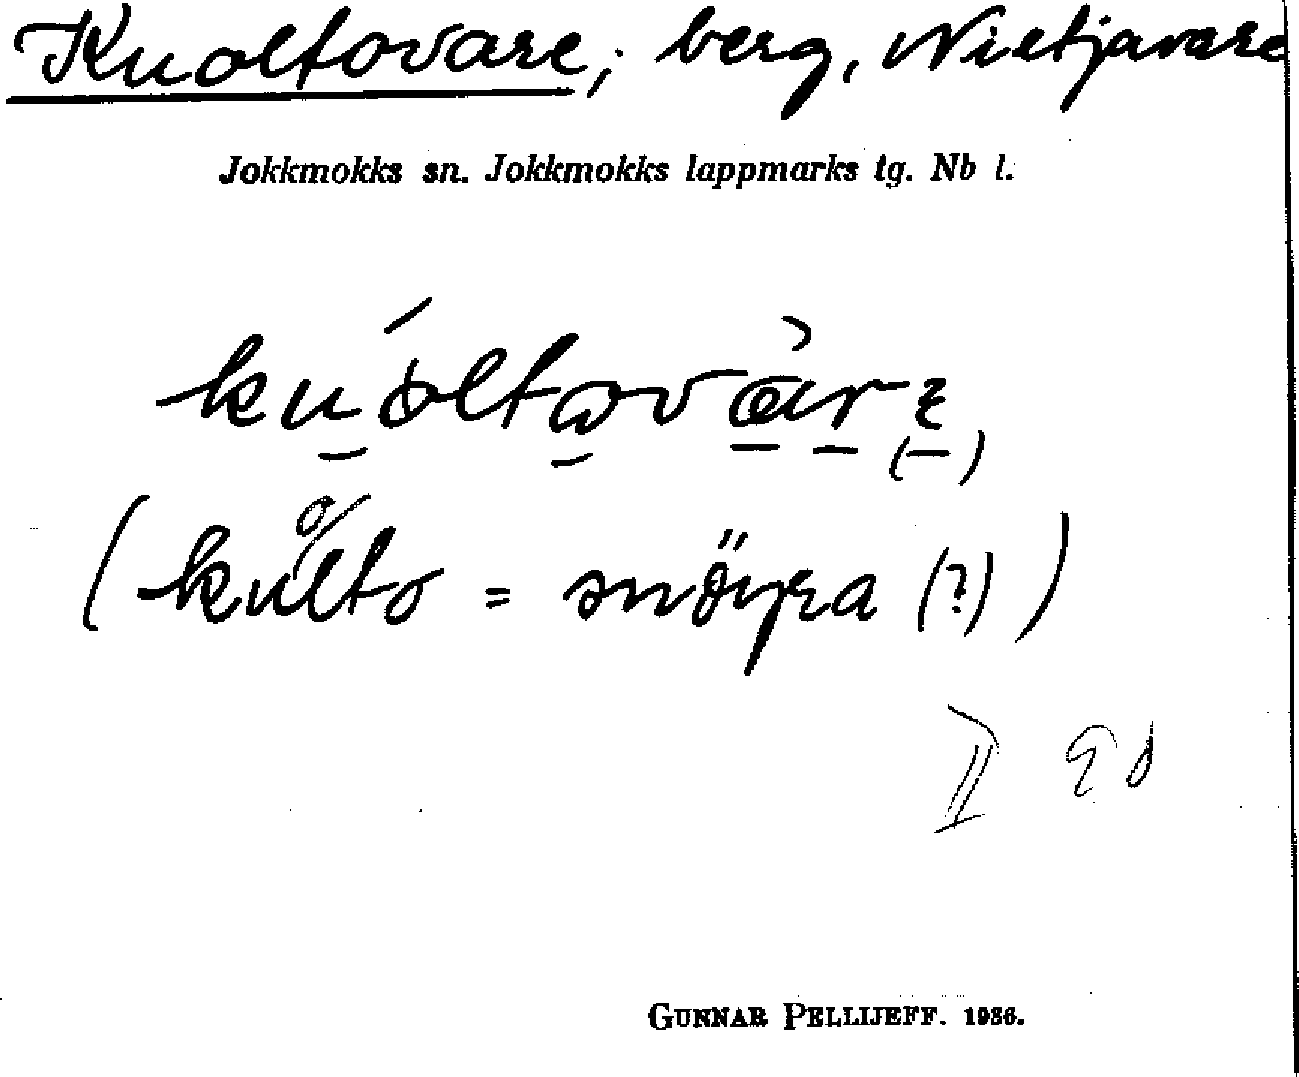 Kuoltovare, berg, Nietjavare
Jokkmokks sn. Jokkmokks lappmarks tg. Nb l.
kuoltovārɛ
(-)
(kuolto = snöyra (?))
II 9 d
GUNNAR PELLIJEFF. 1936.